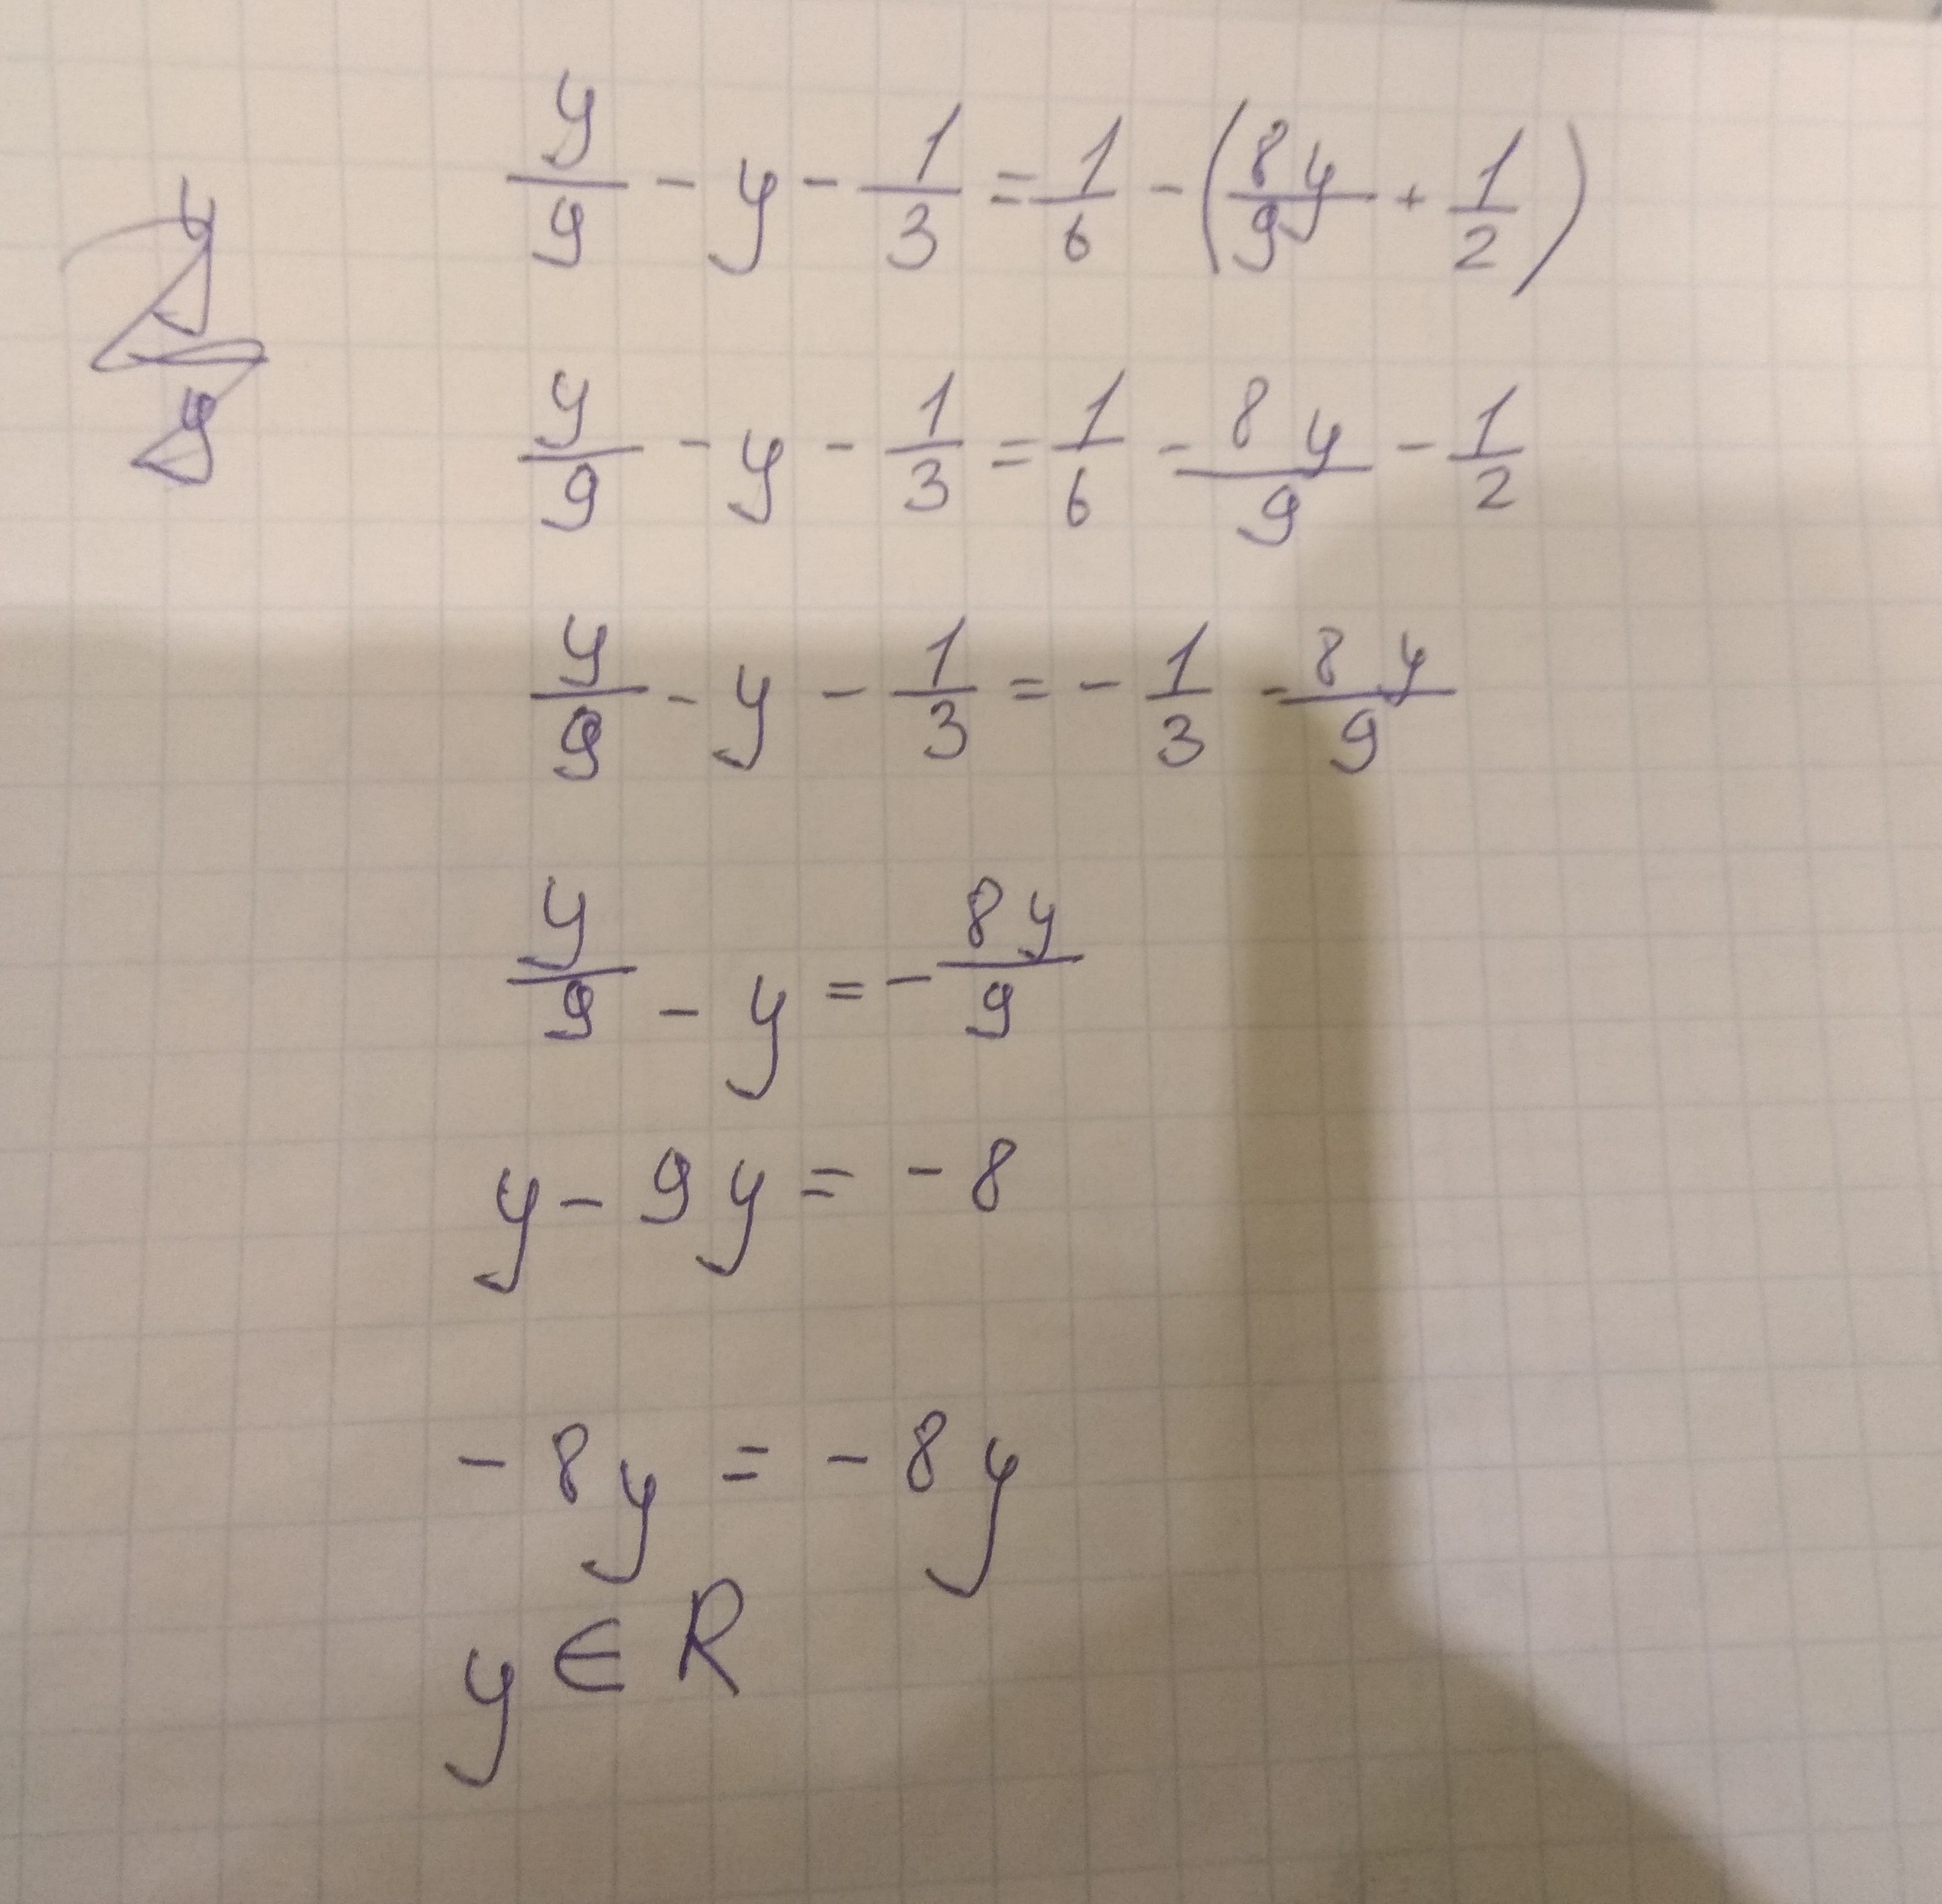 y/9 - y - 1/3 = 1/6 - (8y/9 + 1/2)
y/9 - y - 1/3 = 1/6 - 8y/9 - 1/2
y/9 - y - 1/3 = - 1/3 - 8y/9
y/9 - y = - 8y/9
y - 9y = - 8
- 8y = - 8y
y ∈ R